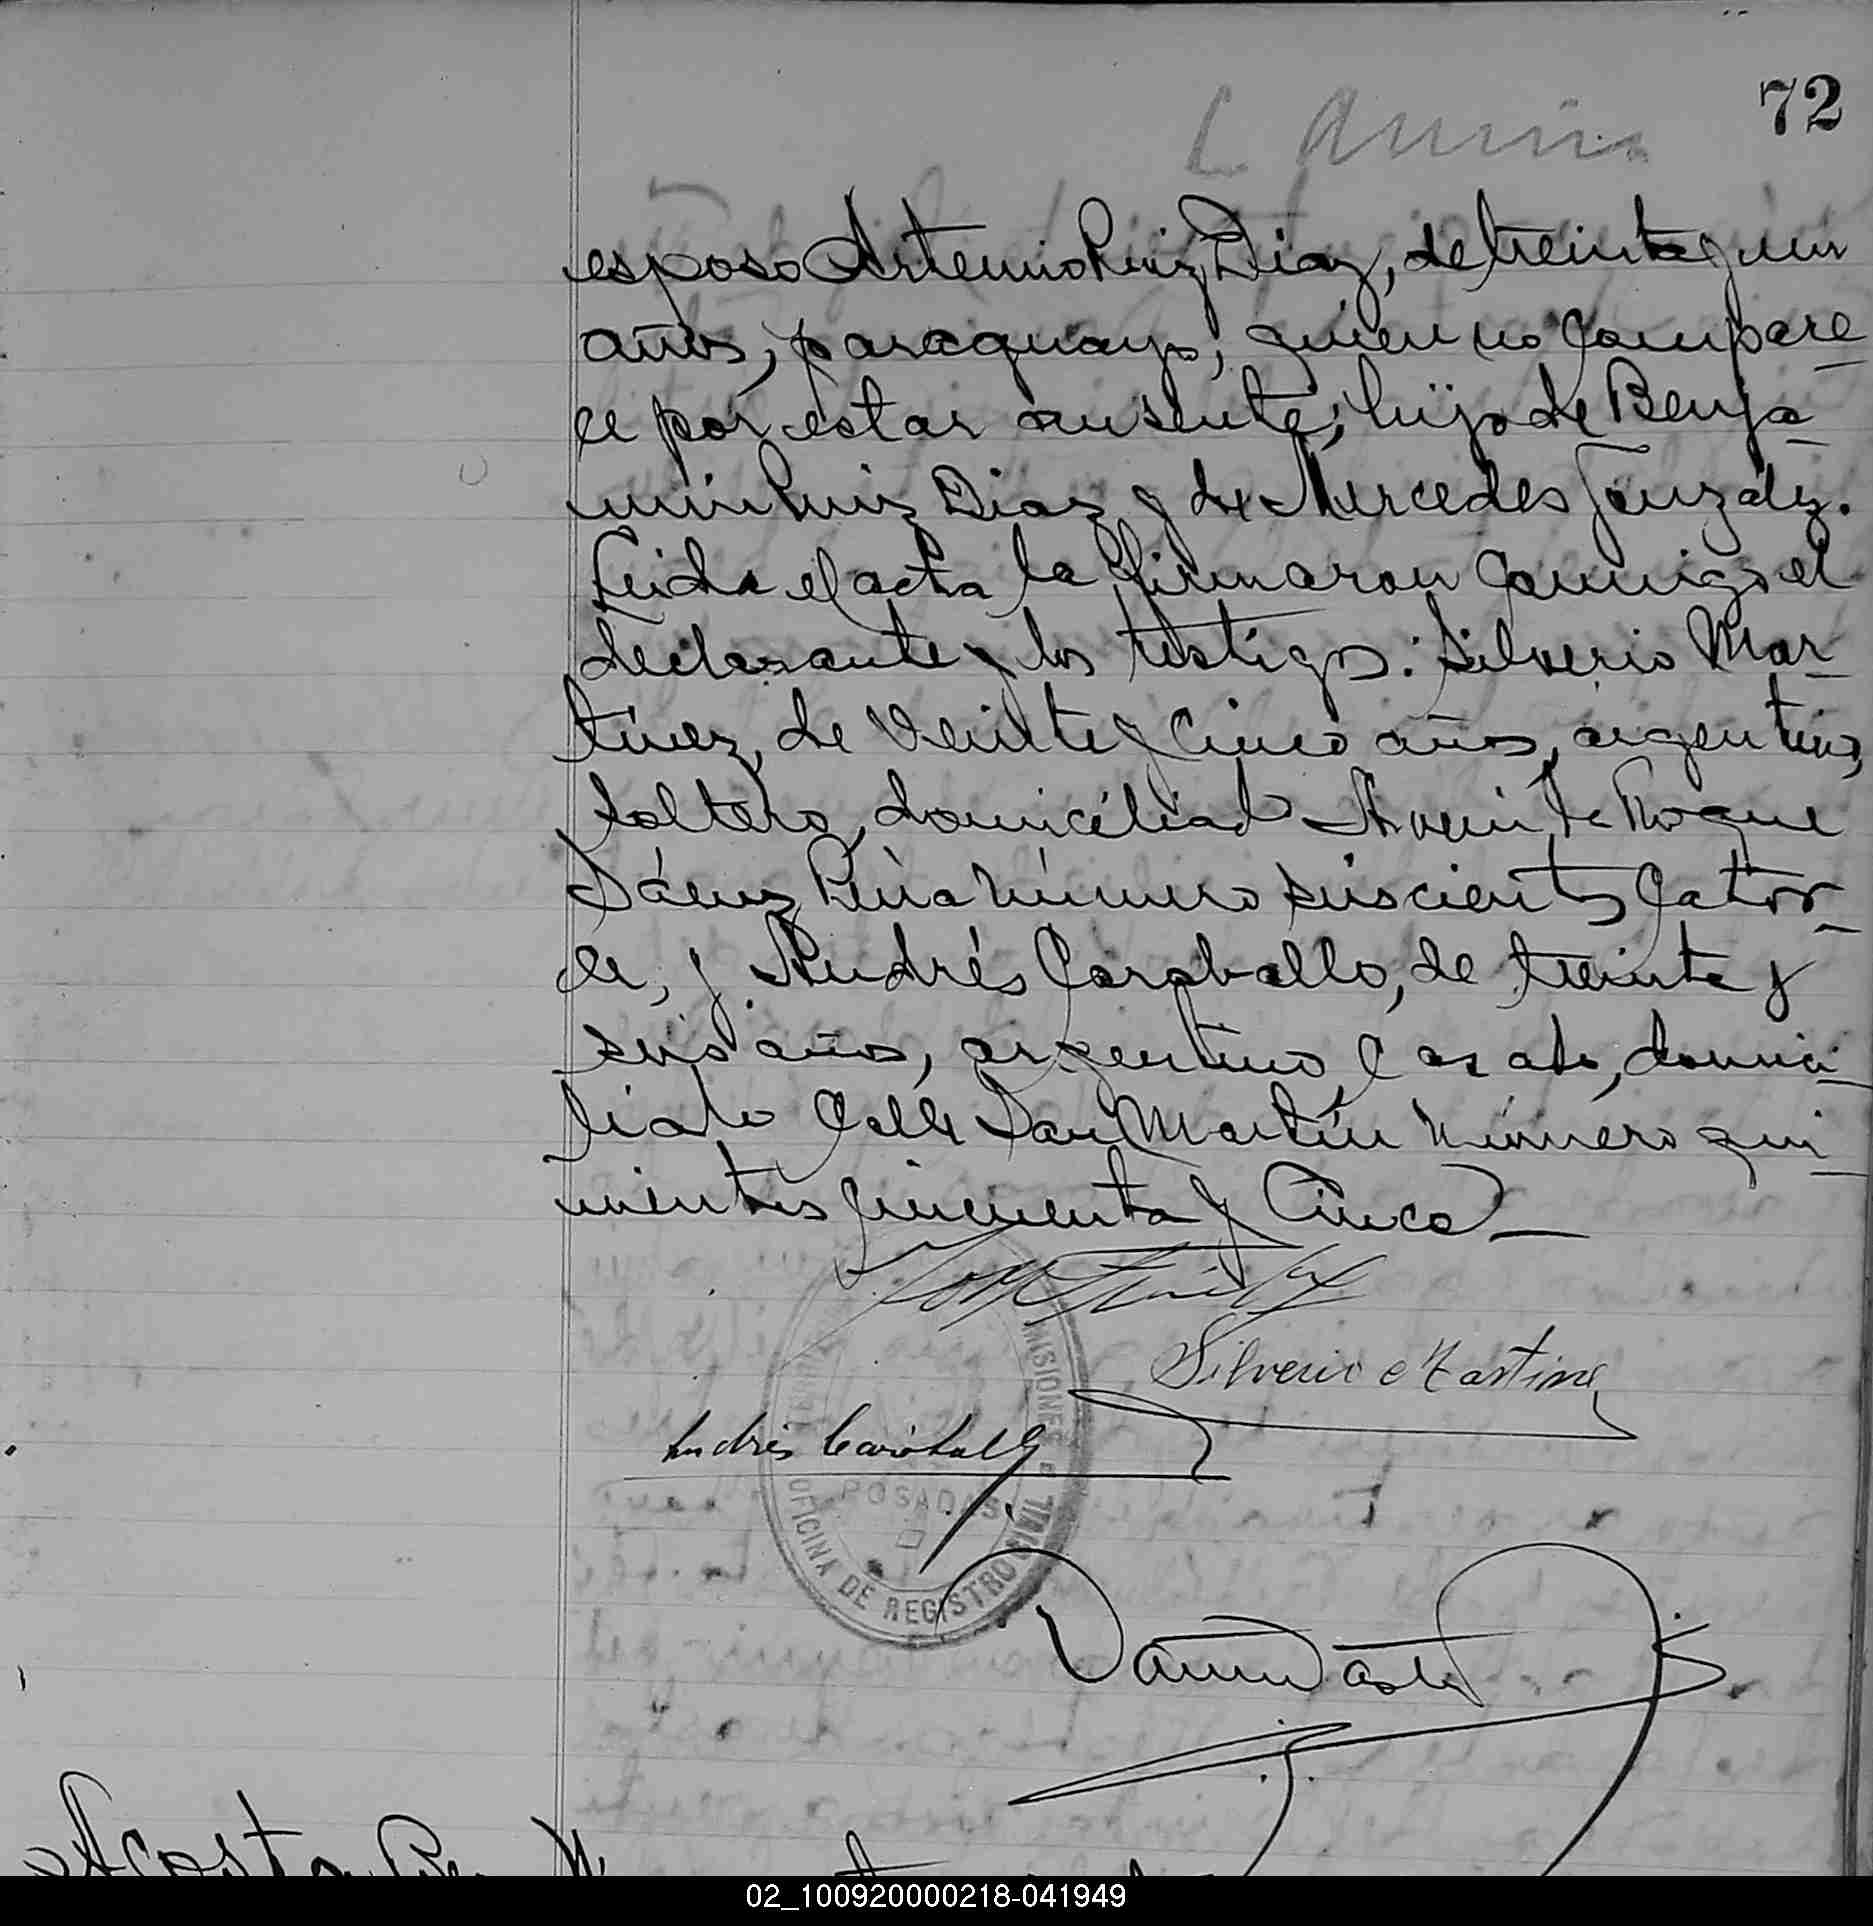 72
esposo Artemio Ruiz Diaz, de treinta y un
años, paraguayo, quien no compare-
ce por estar ausente; hijo de Benja-
mín Ruiz Diaz y de Mercedes González.
Leida el acta la firmaron conmigo el
declarante y los testigos: Silverio Mar-
tínez, de veinte y cinco años, argentino,
soltero, domiciliado Avenida Roque
Sáenz Peña número seiscientos cator-
ce, y Andrés Caraballo, de treinta y
seis años, argentino, casado, domici-
liado calle San Martín número qui-
nientos cincuenta y cinco—
Silverio Martinez
Andrés Caraballo
MISIONES
POSADAS
OFICINA DE REGISTRO CIVIL
Acosta
02_100920000218-041949